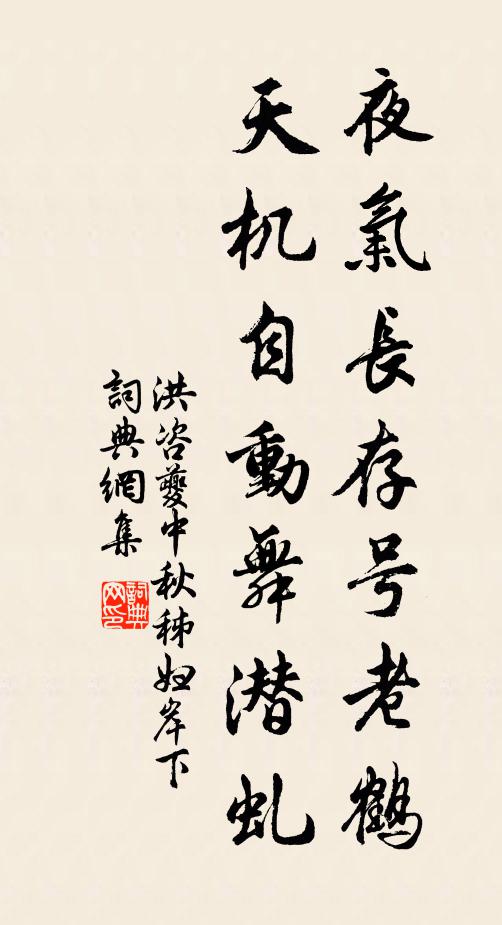 夜氣長存号老鶴
天机自動舞潜虬
洪咨夔中秋秭妲岸下
詞典網集
詞典网印